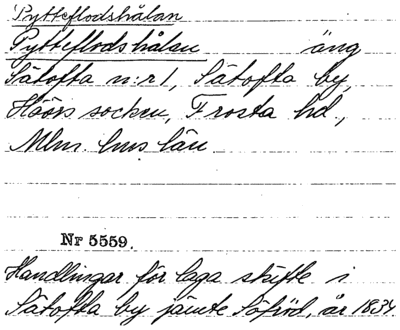 Pytteflodshålan
Pytteflodshålan äng
Sätofta n:r 1, Sätofta by,
Höörs socken, Frosta hd.,
Mlm. hus län
Nr 5559.
Handlingar för laga skifte i
Sätofta by jämte Sjöfrid, år 1834